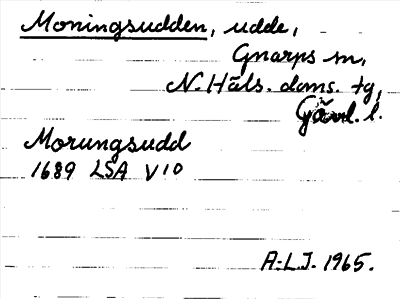 Moningsudden, udde,
Gnarps sn,
N. Häls. doms. tg,
Gävl. l.
Morungsudd
1689 LSA V10
A.L.J. 1965.